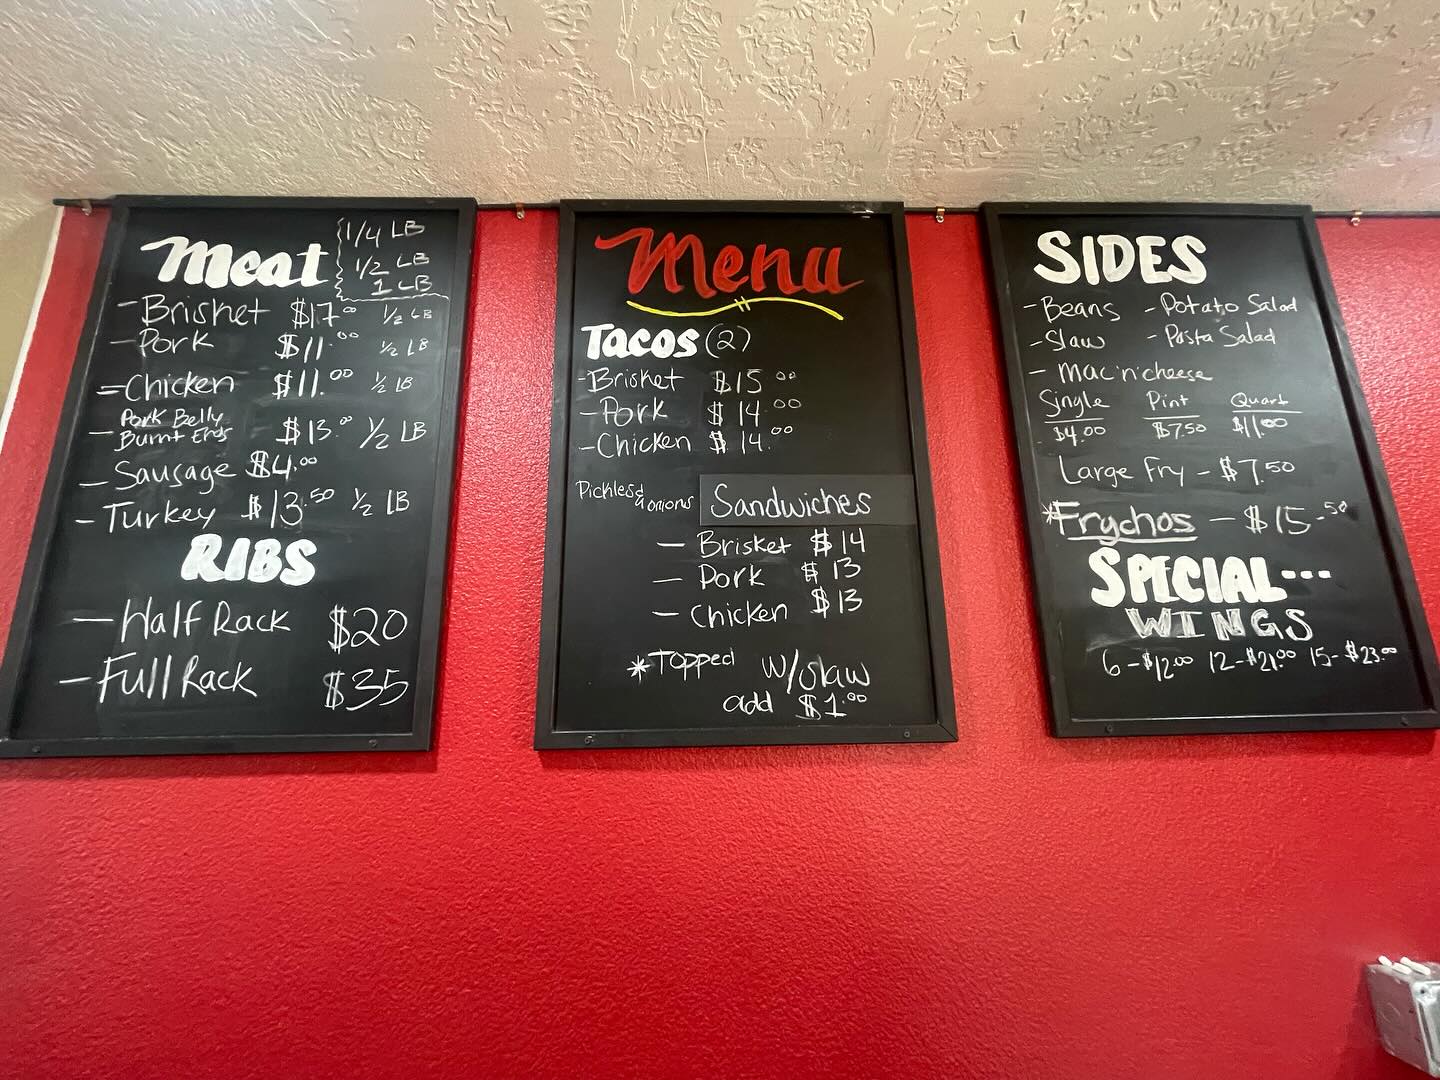 Meat
1/4 LB
1/2 LB
1 LB
- Brisket $17.00 1/2 LB
- Pork $11.00 1/2 LB
- Chicken $11.00 1/2 LB
- Pork Belly
Burnt Ends $13.00 1/2 LB
- Sausage $4.00
- Turkey $13.50 1/2 LB
RIBS
- Half Rack $20
- Full Rack $35
Menu
Tacos (2)
- Brisket $15.00
- Pork $14.00
- Chicken $14.00
Pickles & onions
Sandwiches
- Brisket $14
- Pork $13
- Chicken $13
*Topped w/slaw
add $1.00
SIDES
- Beans - Potato Salad
- Slaw - Pasta Salad
- Mac'n'cheese
Single Pint Quart
$4.00 $7.50 $11.00
Large Fry - $7.50
*Frychos - $15.50
SPECIAL...
WINGS
6-$12.00 12-$21.00 15-$23.00